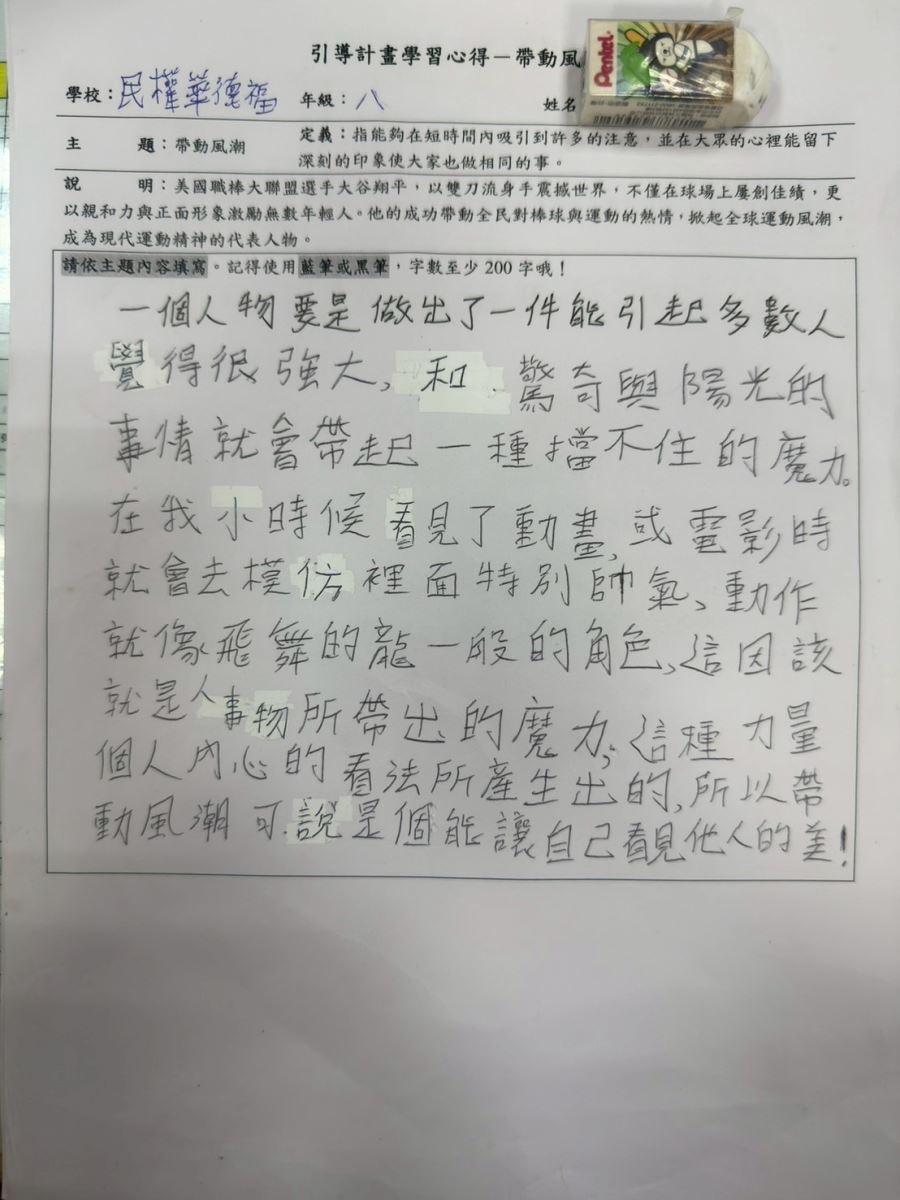 引導計畫學習心得－帶動風
Pentel
學校：民權華德福 年級：八 姓名
主 題：帶動風潮 定義：指能夠在短時間內吸引到許多的注意，並在大眾的心裡能留下
深刻的印象使大家也做相同的事。
說 明：美國職棒大聯盟選手大谷翔平，以雙刀流身手震撼世界，不僅在球場上屢創佳績，更
以親和力與正面形象激勵無數年輕人。他的成功帶動全民對棒球與運動的熱情，掀起全球運動風潮，
成為現代運動精神的代表人物。
請依主題內容填寫。記得使用藍筆或黑筆，字數至少 200 字哦！
一個人物要是做出了一件能引起多數人
覺得很強大，和驚奇與陽光的
事情就會帶起一種擋不住的魔力。
在我小時候看見了動畫，或電影時
就會去模仿裡面特別帥氣、動作
就像飛舞的龍一般的角色，這因該
就是人事物所帶出的魔力，這種力量
個人內心的看法所產生出的，所以帶
動風潮可說是個能讓自己看見他人的美！